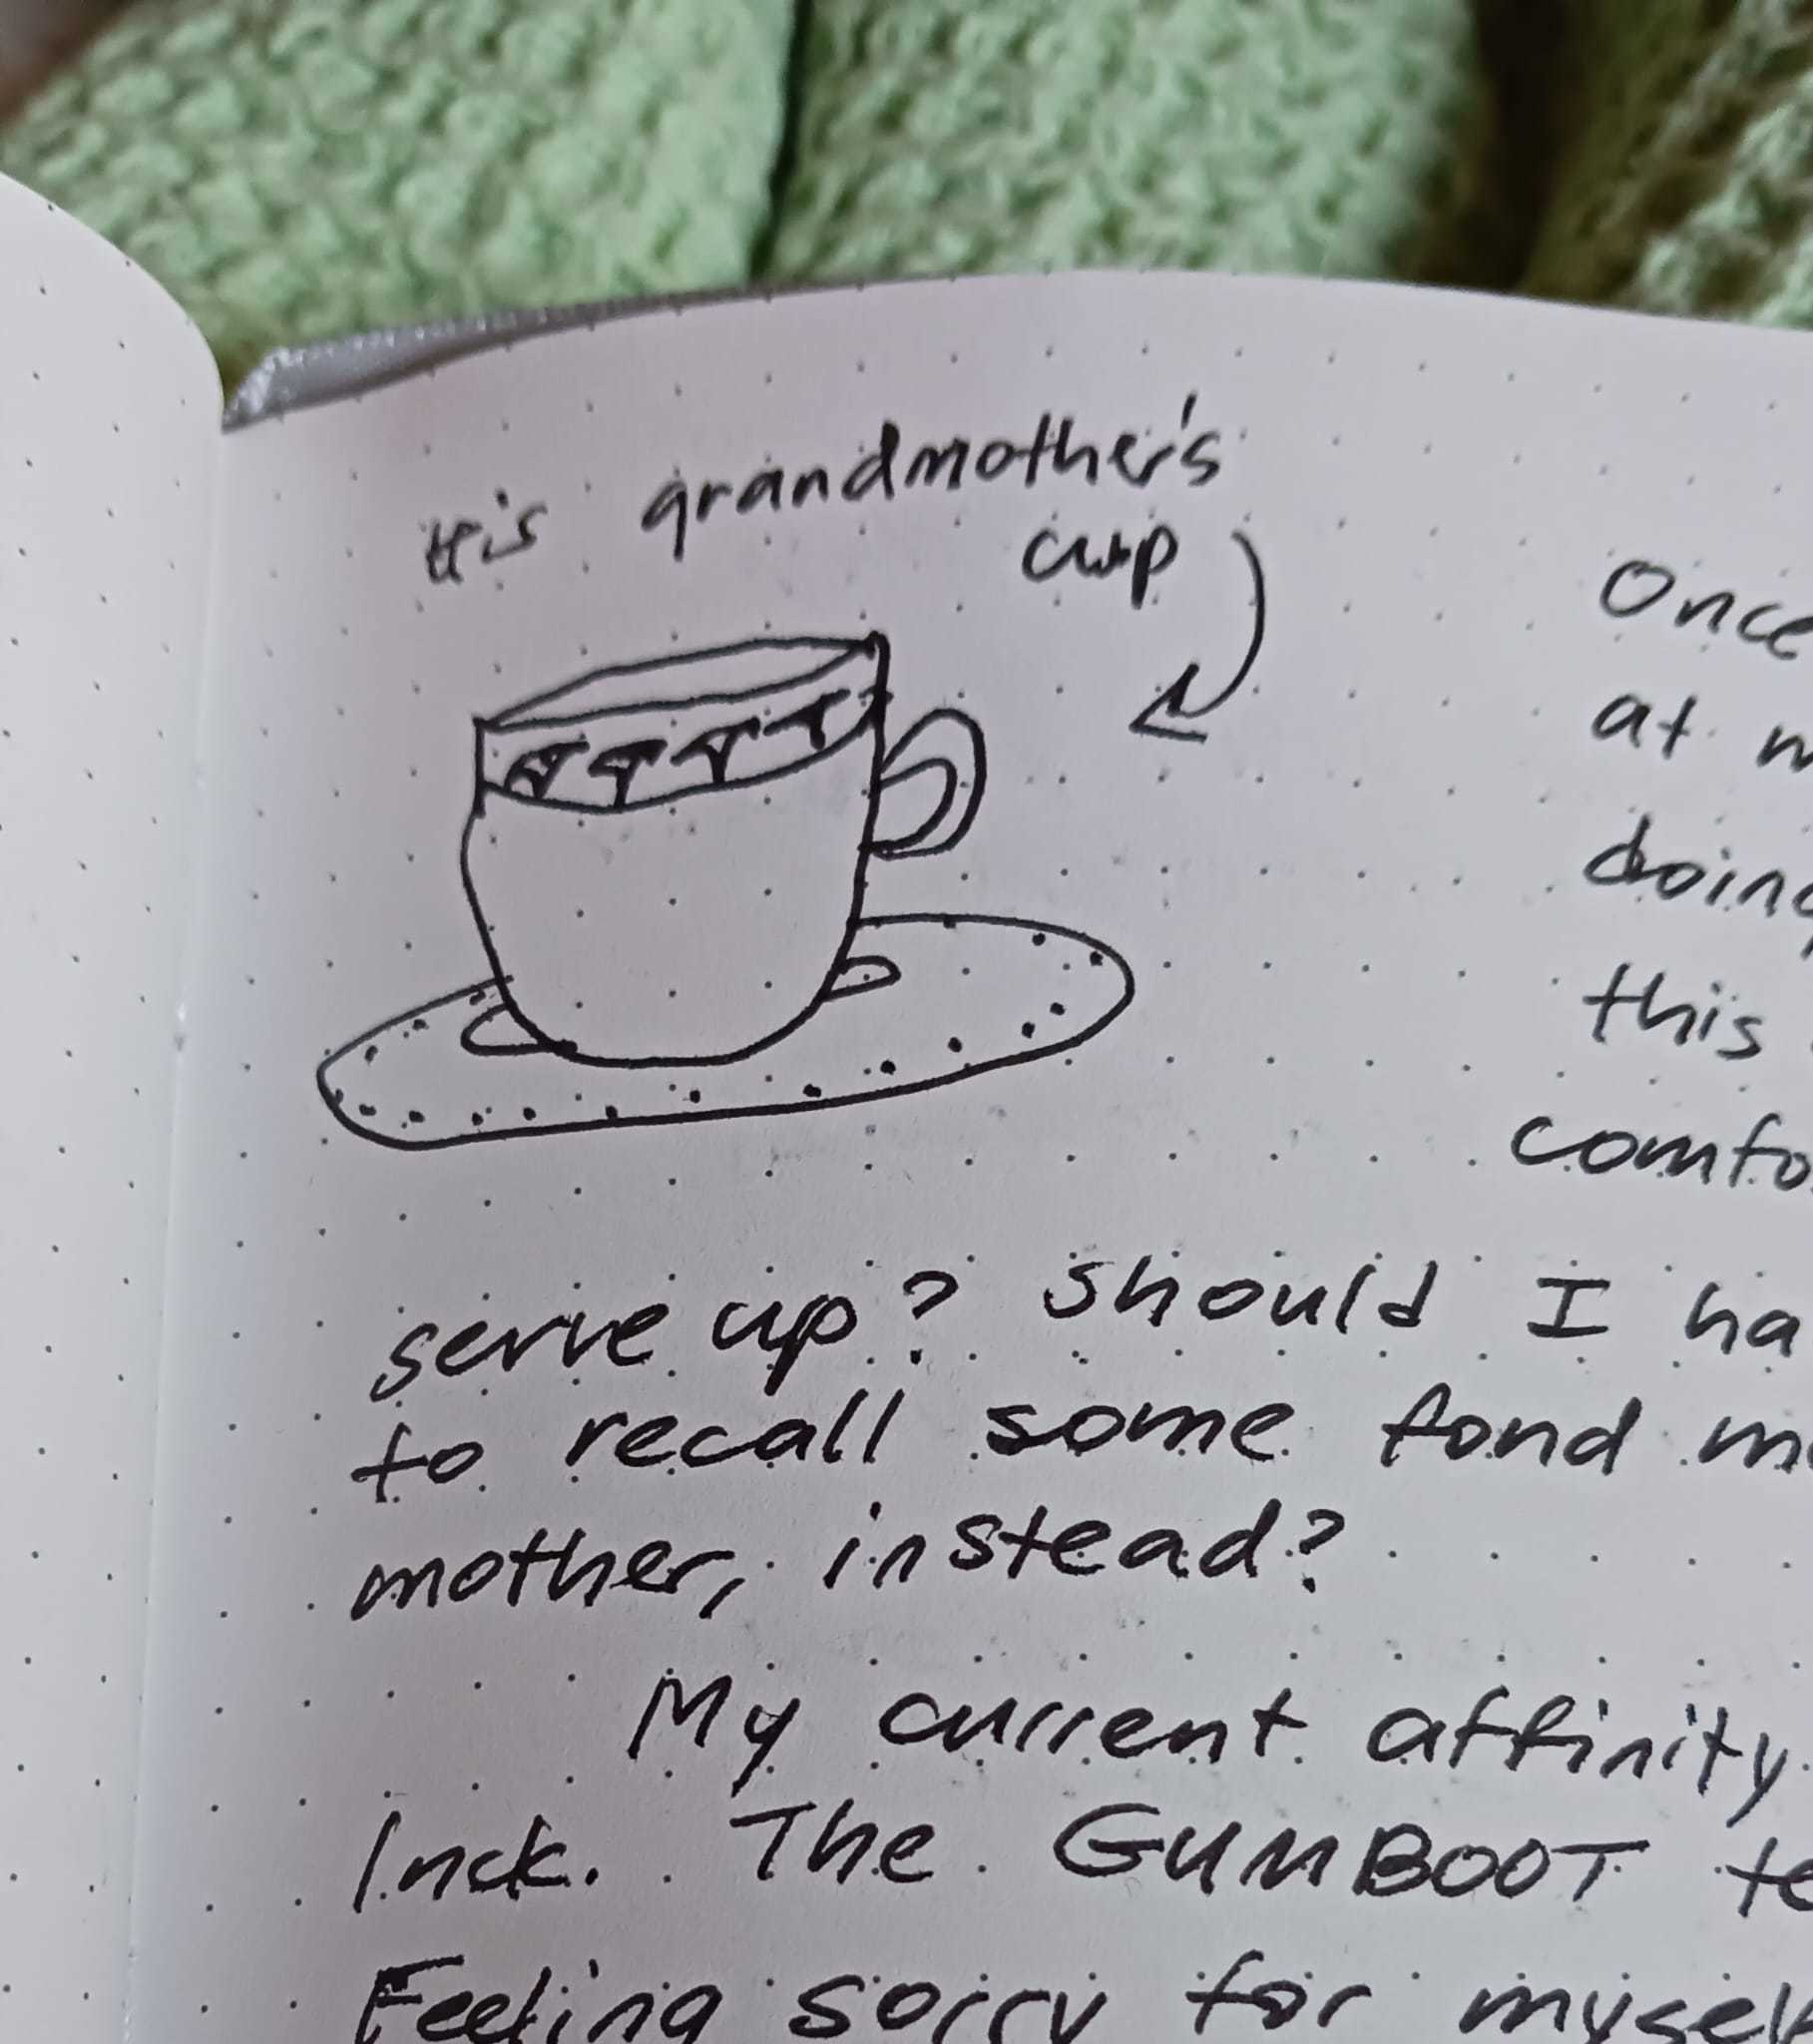 His grandmother's
cup
Once
at
doing
this
comfo
serve up? Should I ha
to recall some fond m
mother, instead?
My current affinity
luck. The GUMBOOT te
Feeling sorry for mysel